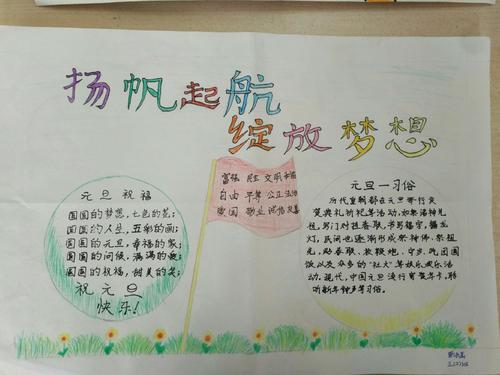 扬帆起航
绽放梦想
元旦祝福
圆圆的梦想，七色的花；
圆圆的人生，五彩的画；
圆圆的元旦，幸福的家；
圆圆的问候，满满的爱；
圆圆的祝福，甜美的笑；
祝元旦
快乐！
富强 民主 文明 和谐
自由 平等 公正 法治
爱国 敬业 诚信 友善
元旦一习俗
历代皇朝都在元旦举行庆
贺典礼祈祀等活动，如祭诸神先
祖，写门对挂春联，书写福字、舞龙
灯，民间也逐渐形成祭神佛、祭祖
先，贴春联、放鞭炮、守岁、吃团圆
饭以及众多的“社火”等娱乐欢乐活
动。现代，中国元旦流行寄贺年卡，聆
听新年钟声等习俗。